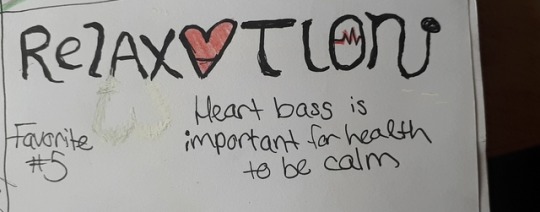 RelAXATION
Favorite
#5
Heart bass is
important for health
to be calm